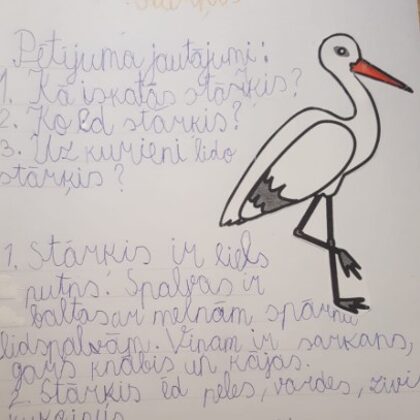 Stārķis
Pētījuma jautājumi:
1. Kā izskatās stārķis?
2. Ko ēd stārķis?
3. Uz kurieni lido
stārķis?
1. Stārķis ir liels
putns. Spalvas ir
baltas ar melnām spārnu
lidspalvām. Viņam ir sarkans,
garš knābis un kājas.
2. Stārķis ēd peles, vardes, zivi